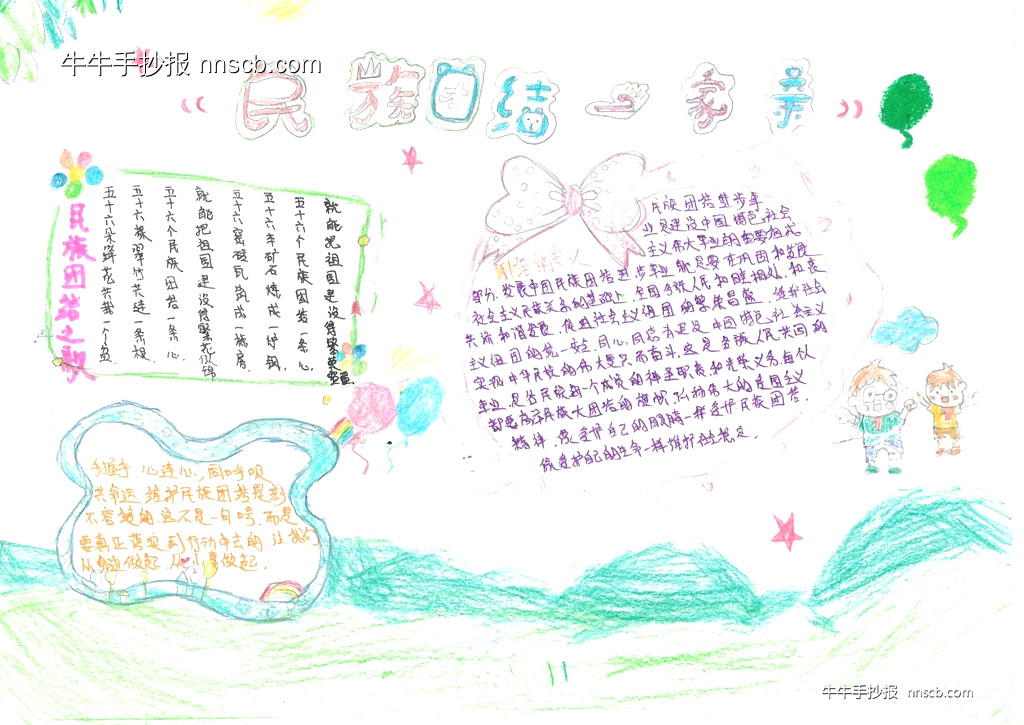 牛牛手抄报 nnscb.com
民族团结一家亲
民族团结之歌
五十六朵鲜花共栽一个盆
五十六棵翠竹共连一条根
五十六个民族团结一条心
就能把祖国建设得繁花似锦
五十六窑砖瓦筑成一栋房
五十六车矿石炼成一炉钢
五十六个民族团结一条心
就能把祖国建设得繁荣富强
民族团结进步事
业是建设中国特色社会
主义伟大事业的重要组成
部分,发展中国民族团结进步事业就是要在巩固和发展
社会主义民族关系的基础上,全国各族人民和睦相处、和衷
共济和谐发展,促进社会主义祖国的繁荣昌盛,维护社会
主义祖国的统一安全,同心同德为建设中国特色社会主义
实现中华民族的伟大复兴而奋斗,这是各族人民共同的
事业,是各民族每一个成员的神圣职责和光荣义务,每个人
都要高举民族大团结的旗帜,弘扬伟大的爱国主义
精神,像爱护自己的眼睛一样爱护民族团结,
像爱护自己的生命一样维护社会稳定。
手握手 心连心,同呼吸
共命运 维护民族团结是刻
不容缓的,这不是一句口号,而是
要真正落实到行动中去的,让我们
从身边做起,从小事做起。
牛牛手抄报 nnscb.com